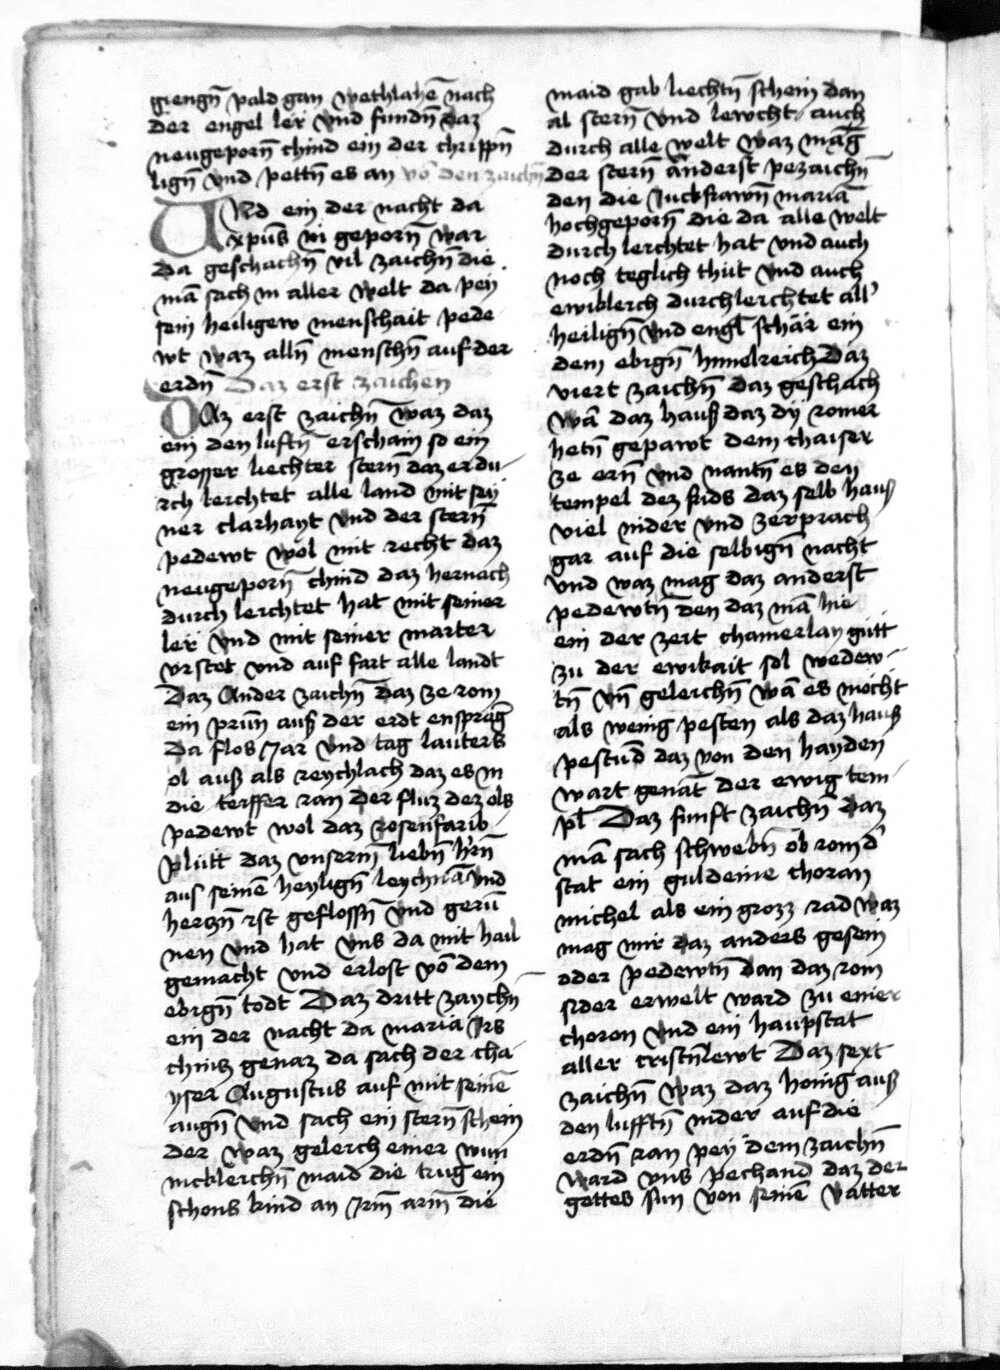 giengn̄ pald gan wethlahē nach
der engel ler vnd fundn̄ daz
neugeporn̄ chind ein der chrippn̄
lign̄ vnd pettn̄ es an vō den zaichn̄
Vnd ein der nacht da
xpūs in geporn̄ war
da geschachn̄ vil zaichn̄ die
mā sach in aller welt da pey
sein heiligew menschait pede
wt waz alln̄ menschn̄ auf der
erdn̄ Daz erst zaichen
Daz erst zaichn̄ waz daz
ein den luftn̄ erschain so ein
grosser liechter stern̄ daz er du
rch lerchtet alle land mit sey
ner clarhayt vnd der stern̄
pedewt wol mit recht daz
neugeporn̄ chind daz hernach
durch lerchtet hat mit seiner
ler vnd mit seiner marter
vrstet vnd auf fart alle landt
Daz Ander zaichn̄ daz ze rom
ein prūn auß der erdt enspräg
Da flos jar vnd tag lauters
ol auß als reychlach daz es in
die teyffer ran der fluz dez ols
pedewt wol daz rosenfarib
plutt daz vnserm̄ liebn̄ h'rn̄
aus seinē heylign̄ leychnā vnd
herczn̄ ist geflossn̄ vnd gerū
nen vnd hat vns da mit hail
gemacht vnd erlost vō dem
ebign̄ todt Daz dritt zaychn̄
ein der nacht da maria irs
chinz genaz da sach der cha
yser Augustus auf mit seinē
augn̄ vnd sach ein stern̄ schein
der waz gelerch einer wun
nicklerchn̄ maid die trug ein
schons kind an irm̄ arm̄ die
maid gab liechtn̄ schein dan
al stern̄ vnd lewcht auch
durch alle welt waz mäg
der stern̄ änderst pezaichn̄
den die Junckfrawn̄ mariā
hochgeporn̄ die da alle welt
durch lerchtet hat vnd auch
noch teglich thut vnd auch
ewiblerch durchlerchtet all'
heilign̄ vnd engl schär ein
dem ebrgn̄ himelreich Daz
viert zaichn̄ daz geschach
wā daz hauß daz dy romer
hetn̄ gepawt dem chaiser
ze ern̄ vnd nantn̄ es den
tempel dez frids daz selb hauß
viel nider vnd zerprach
gar auf die selbign̄ nacht
vnd waz mag daz anderst
pedewtn̄ den daz mā hie
ein der zeit chamerlay gutt
zu der ewikait sol wedew
tn̄ vn̄ gelerchn̄ wā es mocht
als wenig pesten als daz hauß
pestūd daz von den hayden
wart genāt der ewig tem
pl Daz funft zaichn̄ daz
mā sach schwebn̄ ob rom d'
stat ein guldeine choran
michel als ein grozz rad waz
mag mir daz anders gesein
oder pedewtn̄ dan daz rom
sider erwelt ward zu einer
choron vnd ein haupstat
aller cristn̄lewt Daz sext
zaichn̄ waz daz honig auß
den lufftn̄ nider auf die
erdn̄ ran pey dem zaichn̄
ward vns pechand daz der
gottes sun von seinē vatter